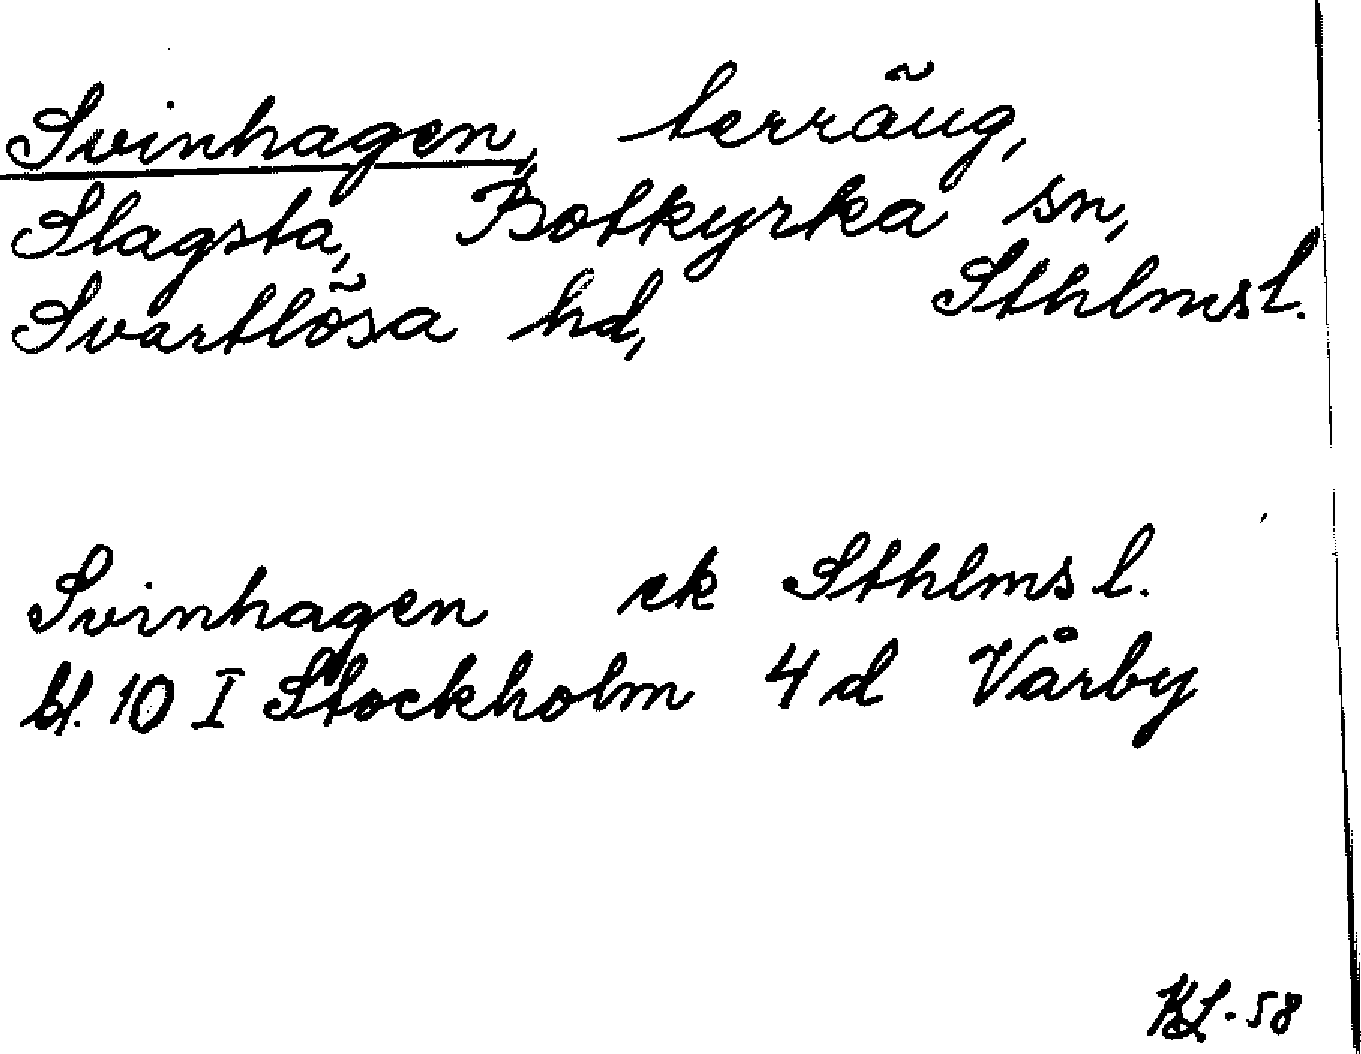 Svinhagen, terräng,
Slagsta, Botkyrka sn,
Svartlösa hd, Sthlms l.
Svinhagen ek Sthlms l.
bl. 10 I Stockholm 4 d Vårby
KL-58